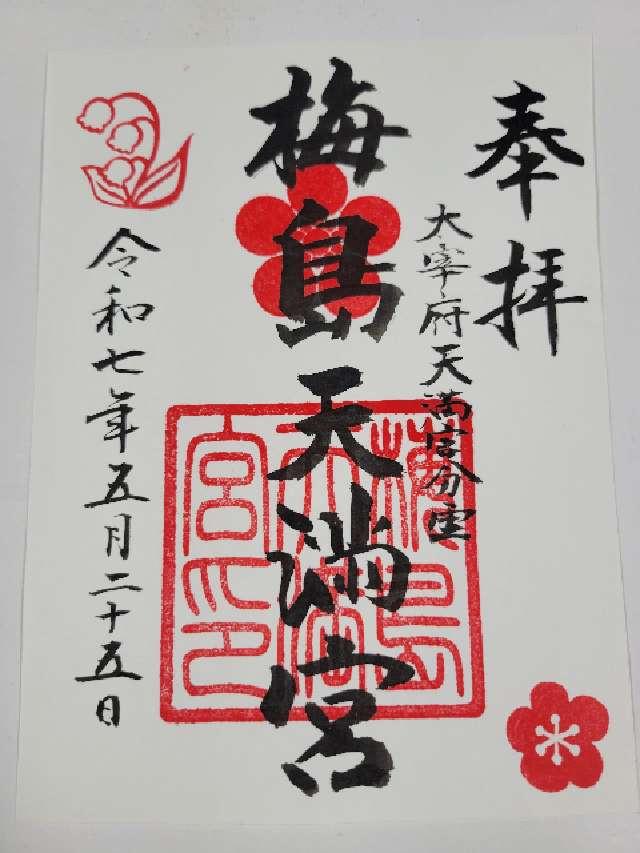 奉拝
太宰府天満宮分霊
梅島天満宮
梅島天満宮印
令和七年五月二十五日